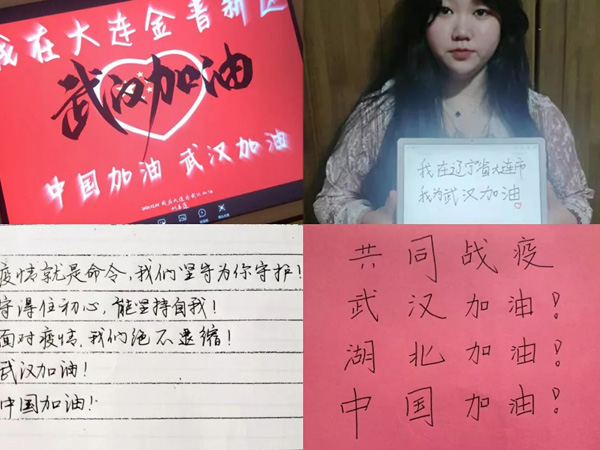 我在大连金普新区
武汉加油
中国加油 武汉加油
我在辽宁省大连市
我为武汉加油
疫情就是命令,我们坚守为你守护!
守得住初心,能坚持自我!
面对疫情,我们绝不退缩!
武汉加油!
中国加油!
共同战疫
武汉加油!
湖北加油!
中国加油!